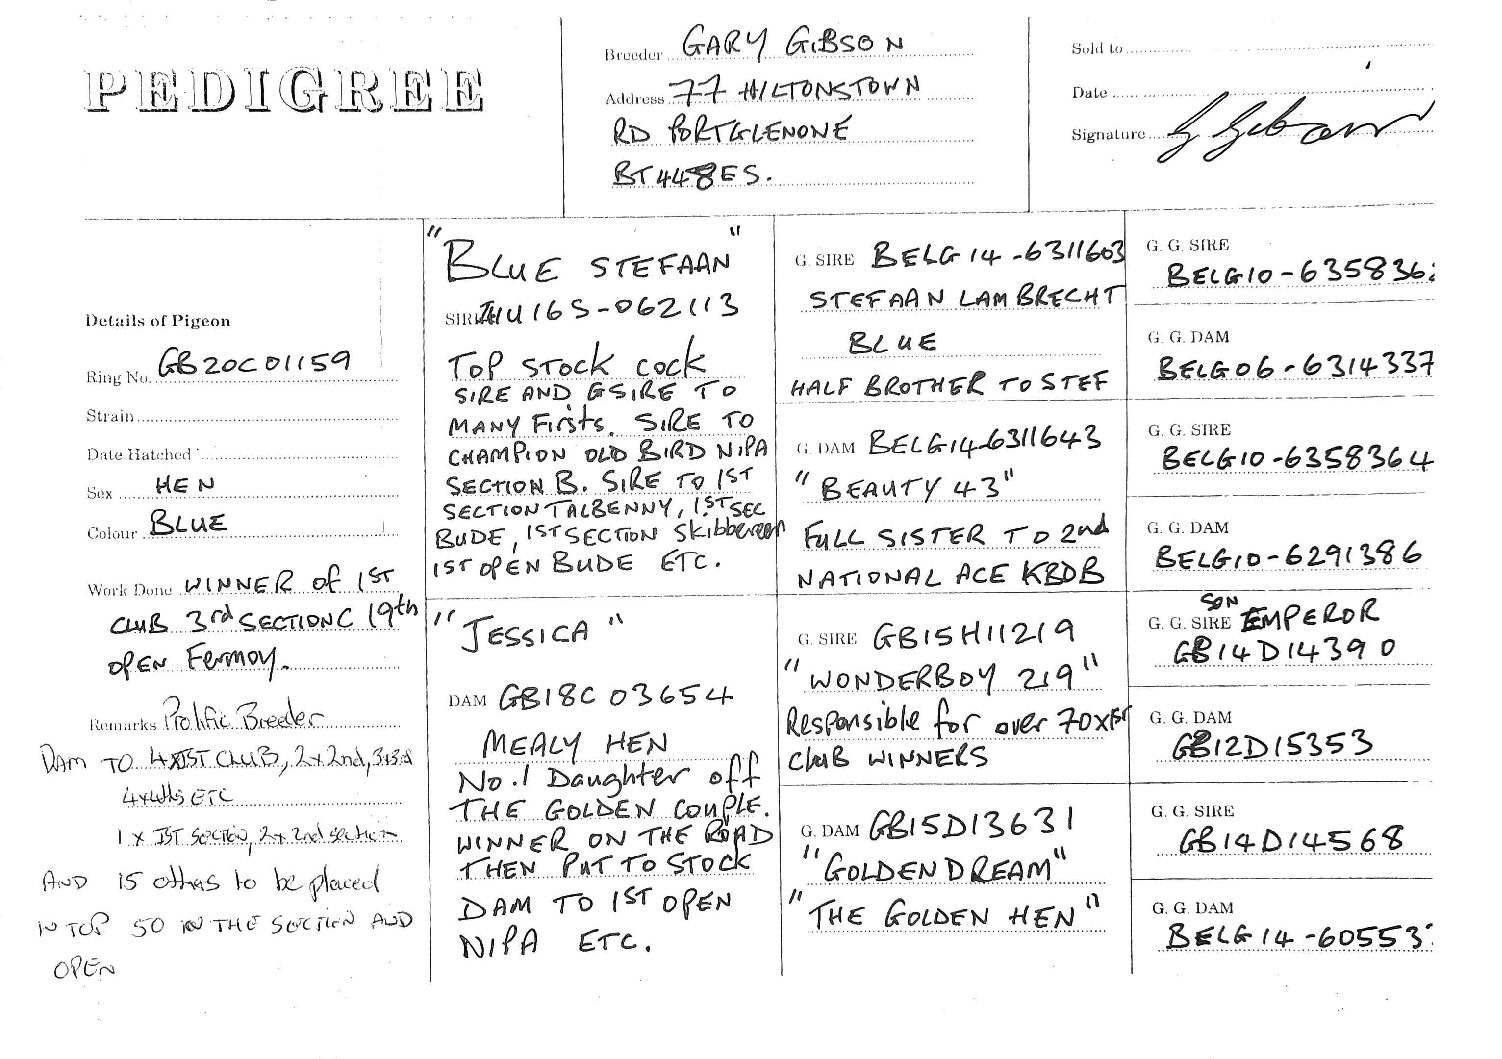 PEDIGREE
Breeder GARY GIBSON
Address 77 HILTONSTOWN
RD PORTGLENONE
BT448ES.
Sold to
Date
Signature G Gibson
Details of Pigeon
Ring No. GB20C01159
Strain
Date Hatched
Sex HEN
Colour BLUE
Work Done WINNER OF 1ST
CLUB 3rd SECTION C 19th
OPEN Fermoy.
Remarks Prolific Breeder
DAM TO 4X1ST CLUB, 2x2nd, 3x3rd
4x4ths ETC
1 x 1ST SECTION, 2x2nd section
AND 15 others to be placed
IN TOP 50 IN THE SECTION AND
OPEN
"BLUE STEFAAN"
SIRE IHU16S-062113
TOP STOCK COCK
SIRE AND GSIRE TO
MANY Firsts. SIRE TO
CHAMPION OLD BIRD NIPA
SECTION B. SIRE TO 1ST
SECTION TALBENNY, 1ST SEC
BUDE, 1ST SECTION Skibbereen
1ST OPEN BUDE ETC.
"JESSICA"
DAM GB18C03654
MEALY HEN
No.1 Daughter off
THE GOLDEN COUPLE.
WINNER ON THE ROAD
THEN PUT TO STOCK
DAM TO 1ST OPEN
NIPA ETC.
G. SIRE BELG14-6311603
STEFAAN LAMBRECHT
BLUE
HALF BROTHER TO STEF
G. DAM BELG14-6311643
"BEAUTY 43"
FULL SISTER TO 2nd
NATIONAL ACE KBDB
G. SIRE GB15H11219
"WONDERBOY 219"
Responsible for over 70x1st
Club WINNERS
G. DAM GB15D13631
"GOLDEN DREAM"
"THE GOLDEN HEN"
G. G. SIRE
BELG10-635836
G. G. DAM
BELG06-6314337
G. G. SIRE
BELG10-6358364
G. G. DAM
BELG10-6291386
SON
G. G. SIRE EMPEROR
GB14D14390
G. G. DAM
GB12D15353
G. G. SIRE
GB14D14568
G. G. DAM
BELG14-60553